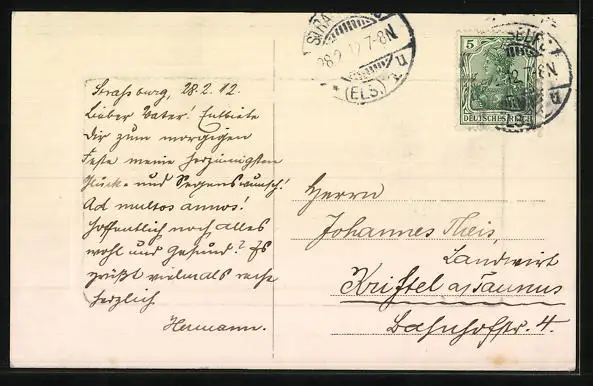 Straßburg, 28.2.12.
Lieber Vater! Entbiete
Dir zum morgigen
Feste meine herzinnigsten
Glück- und Segenswunsch!
Ad multos annos!
Hoffentlich noch alles
wohl und gesund? Es
grüßt vielmals recht
herzlich
Hermann.
28.2.12.7-8N
(ELS.)
5
DEUTSCHES REICH
Herrn
Johannes Theis,
Landwirt
Kriftel a/Taunus
Bahnhofstr. 4.